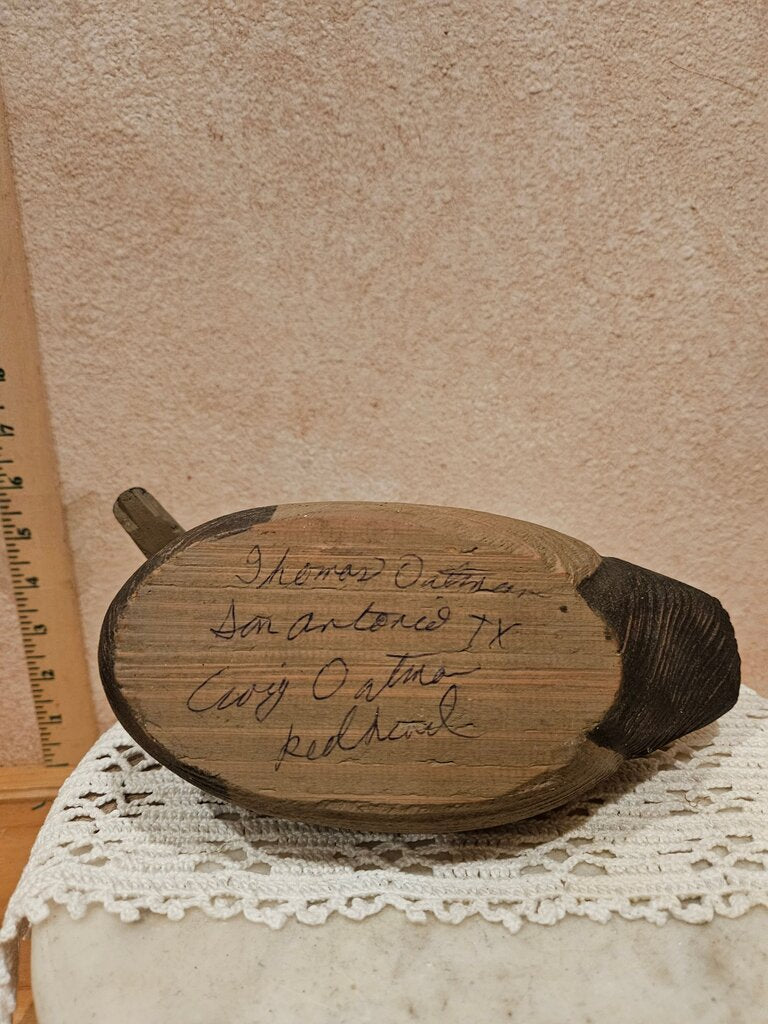 Thomas Oatman
San Antonio TX
Craig Oatman
Redhead
8
7
6
5
4
3
2
1